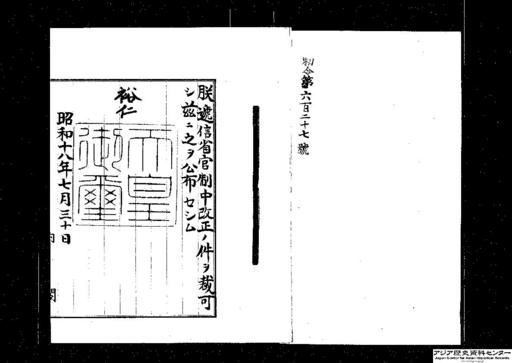 勅令第六百二十七號
朕遞信省官制中改正ノ件ヲ裁可
シ茲ニ之ヲ公布セシム
裕仁
天皇
御璽
昭和十八年七月三十日
内
閣
アジア歴史資料センター
Japan Center for Asian Historical Records